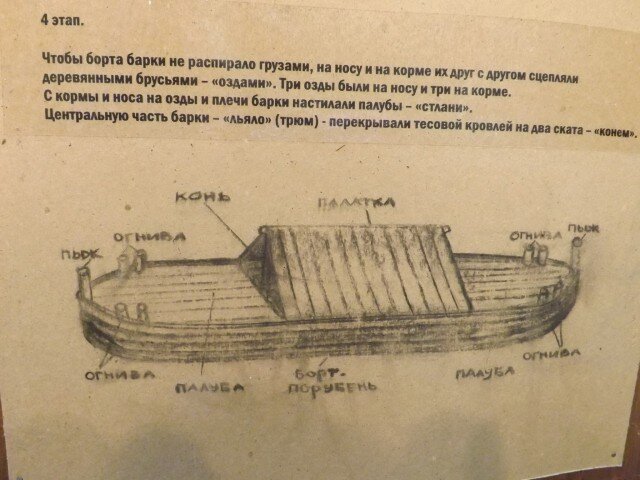 4 этап.
Чтобы борта барки не распирало грузами, на носу и на корме их друг с другом сцепляли
деревянными брусьями – «оздами». Три озды были на носу и три на корме.
С кормы и носа на озды и плечи барки настилали палубы – «стлани».
Центральную часть барки – «льяло» (трюм) - перекрывали тесовой кровлей на два ската – «конем».
КОНЬ
ПАЛАТКА
ОГНИВА
ОГНИВА
ПЫЖ
ПЫЖ
ОГНИВА
ПАЛУБА
БОРТ-
ПОРУБЕНЬ
ПАЛУБА
ОГНИВА